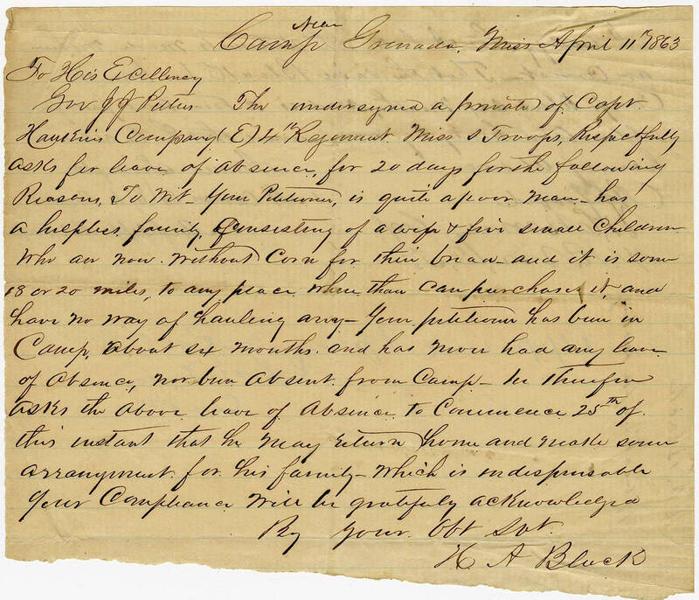 Near
Camp Grenada, Miss April 11th 1863
To His Excellency
Gov J J Pettus The undersigned a private of Capt
Hankins Company (E) 4th Regiment Miss S Troops, Respectfully
asks for leave of absence, for 20 days for the following
Reasons, To Wit- Your Petitioner, is quite a poor man- has
a helpless family Consisting of a wife & five small children
who are now without Corn for their bread and it is some
18 or 20 miles, to any place where than can purchase it, and
have no way of hauling any- Your petitioner has been in
Camp, about six months. and has never had any leave
of absence, nor been absent from Camp- he therefore
asks the above leave of absence to Commence 25th of
this instant that he may return home and make some
arrangement for his family- which is indispensable
Your Compliance will be gratefuly acknowledged
By Your Obt Svt.
H A Block